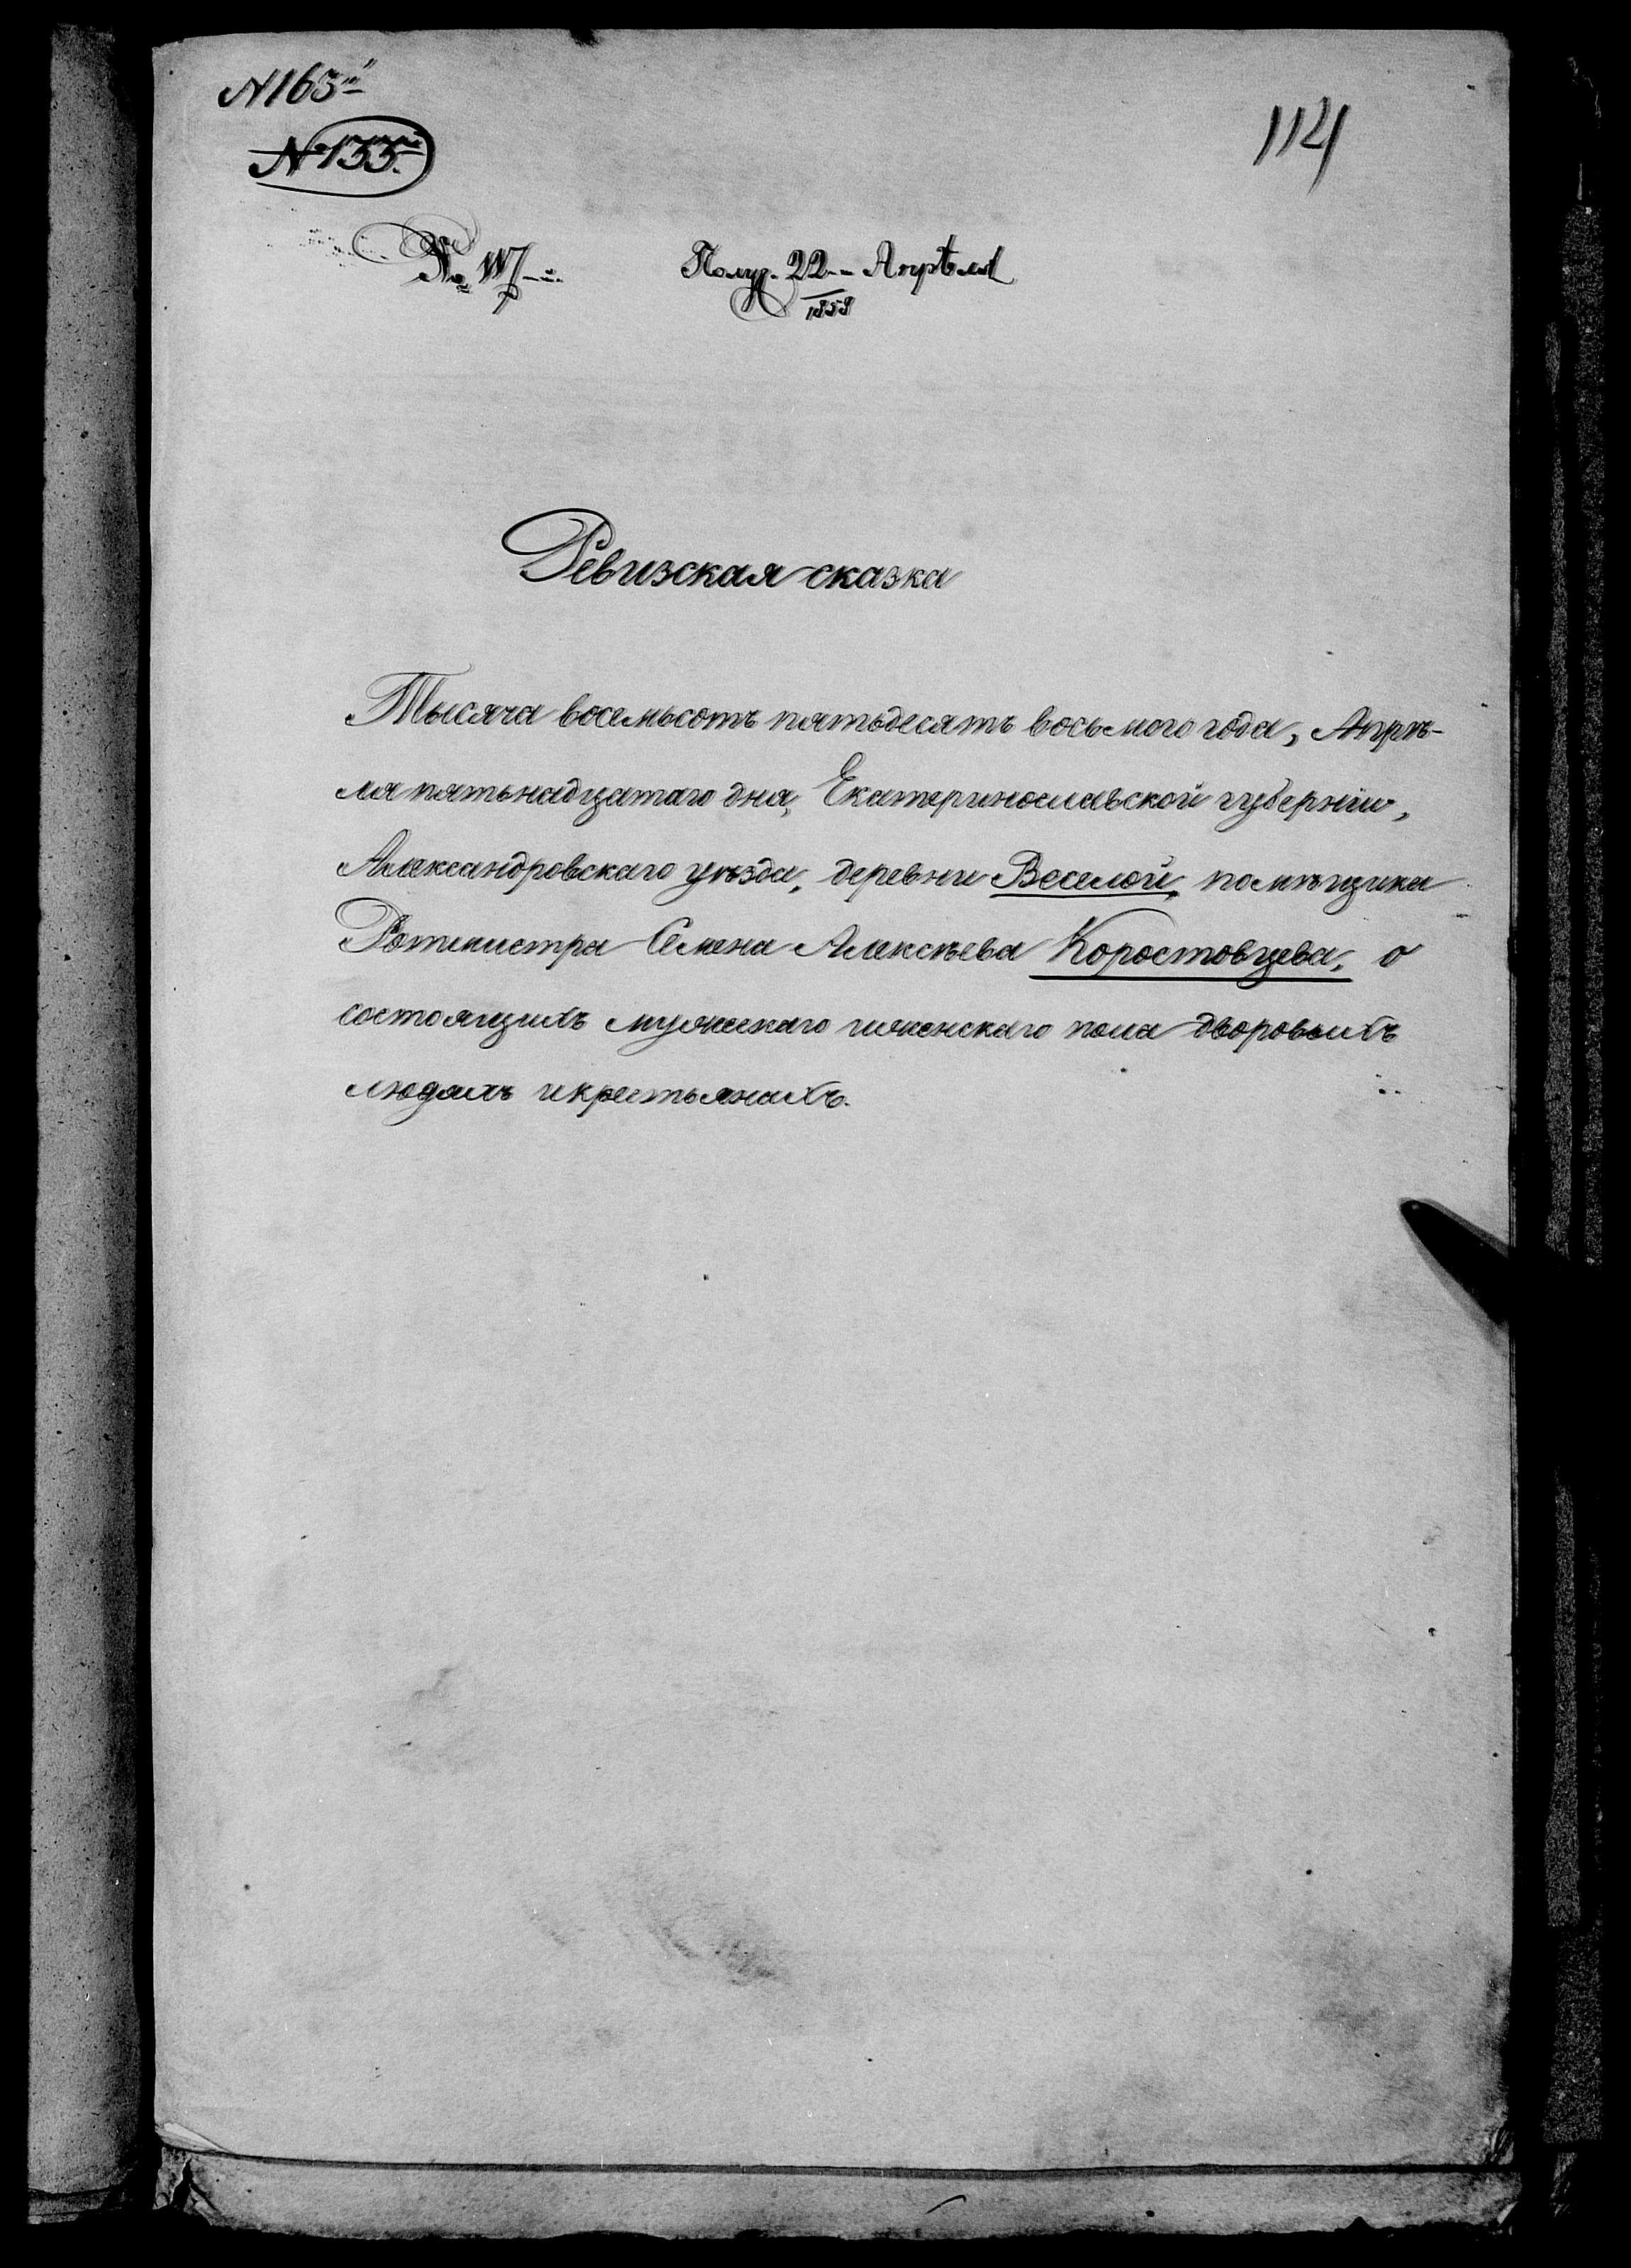 N 163й
114
№ 155.
№ 117
Получ. 22 Апрѣля
1858
Ревизская сказка
Тысяча восемьсотъ пятьдесятъ восьмого года, Апрѣ-
ля пятьнадцатаго дня, Екатеринославской губерніи,
Александровскаго уѣзда, деревни Веселой, помѣщика
Ротмистра Семена Алексѣева Коростовцева, о
состоящихъ мужескаго иженскаго пола дворовыхъ
людяхъ икрестьянахъ.